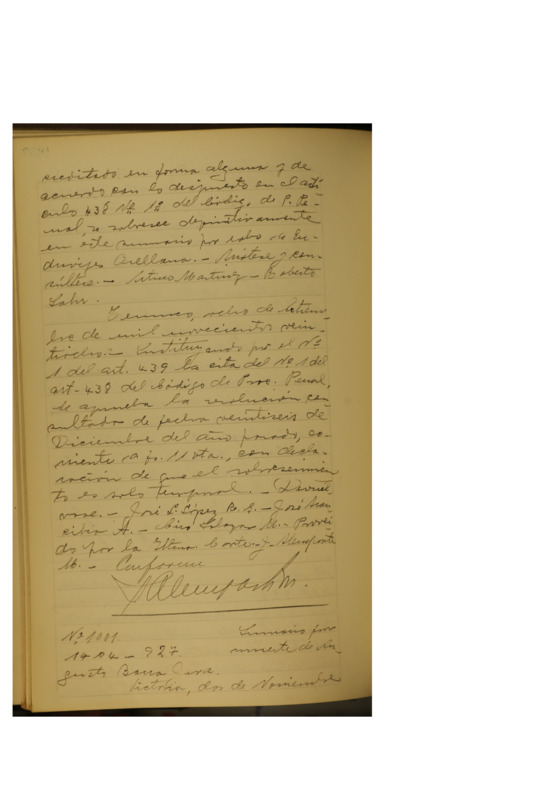 creditado en forma alguna y de
acuerdo con lo dispuesto en el artí
culo 438 Nº 1º del Códig. de P. Pe-
nal, se sobresee definitivamente
en este sumario por robo de Eu-
duvijes Arellano. - Anótese y con-
súltese. - Arturo Martinez - Roberto
Lahr.
Temuco, ocho de Setiem-
bre de mil novecientos vein-
tiocho. - Sustituyendo por el Nº
1 del art. 439 la cita del Nº 1 del
art. 438 del Código de Proc. Penal,
se aprueba la resolución con
sultada de fecha veintiseis de
Diciembre del año pasado, co-
rriente a fs. 11 vta., con decla-
ración de que el sobreseimien
to es solo temporal. - Devuél
vase. - José L. López - José Aran
cibia A. - Salazar M. - Proveí
do por la Iltma. Corte. - J. Alemparte
M. - Conforme
J Alemparte M.
Nº 1001 Sumario por
- 927 muerte de Au
gusto Barra
Victoria, dos de Noviembre